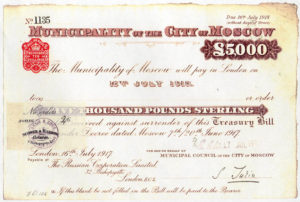 No 1135
Due 16th July 1918
without days of Grace
MUNICIPALITY OF THE CITY OF MOSCOW
£5,000
The Municipality of Moscow will pay in London on
JULY 1918.
to or order
THOUSAND POUNDS STERLING
received against surrender of this Treasury Bill
under Decree dated Moscow 7th/20th June 1917
London, 16th July 1917
FOR AND ON BEHALF OF
MUNICIPAL COUNCIL OF THE CITY OF MOSCOW
Payable at
The Russian Corporation Limited
32 Bishopsgate
London, E.C.2.
If this blank be not filled in the Bill will be paid to the Bearer.